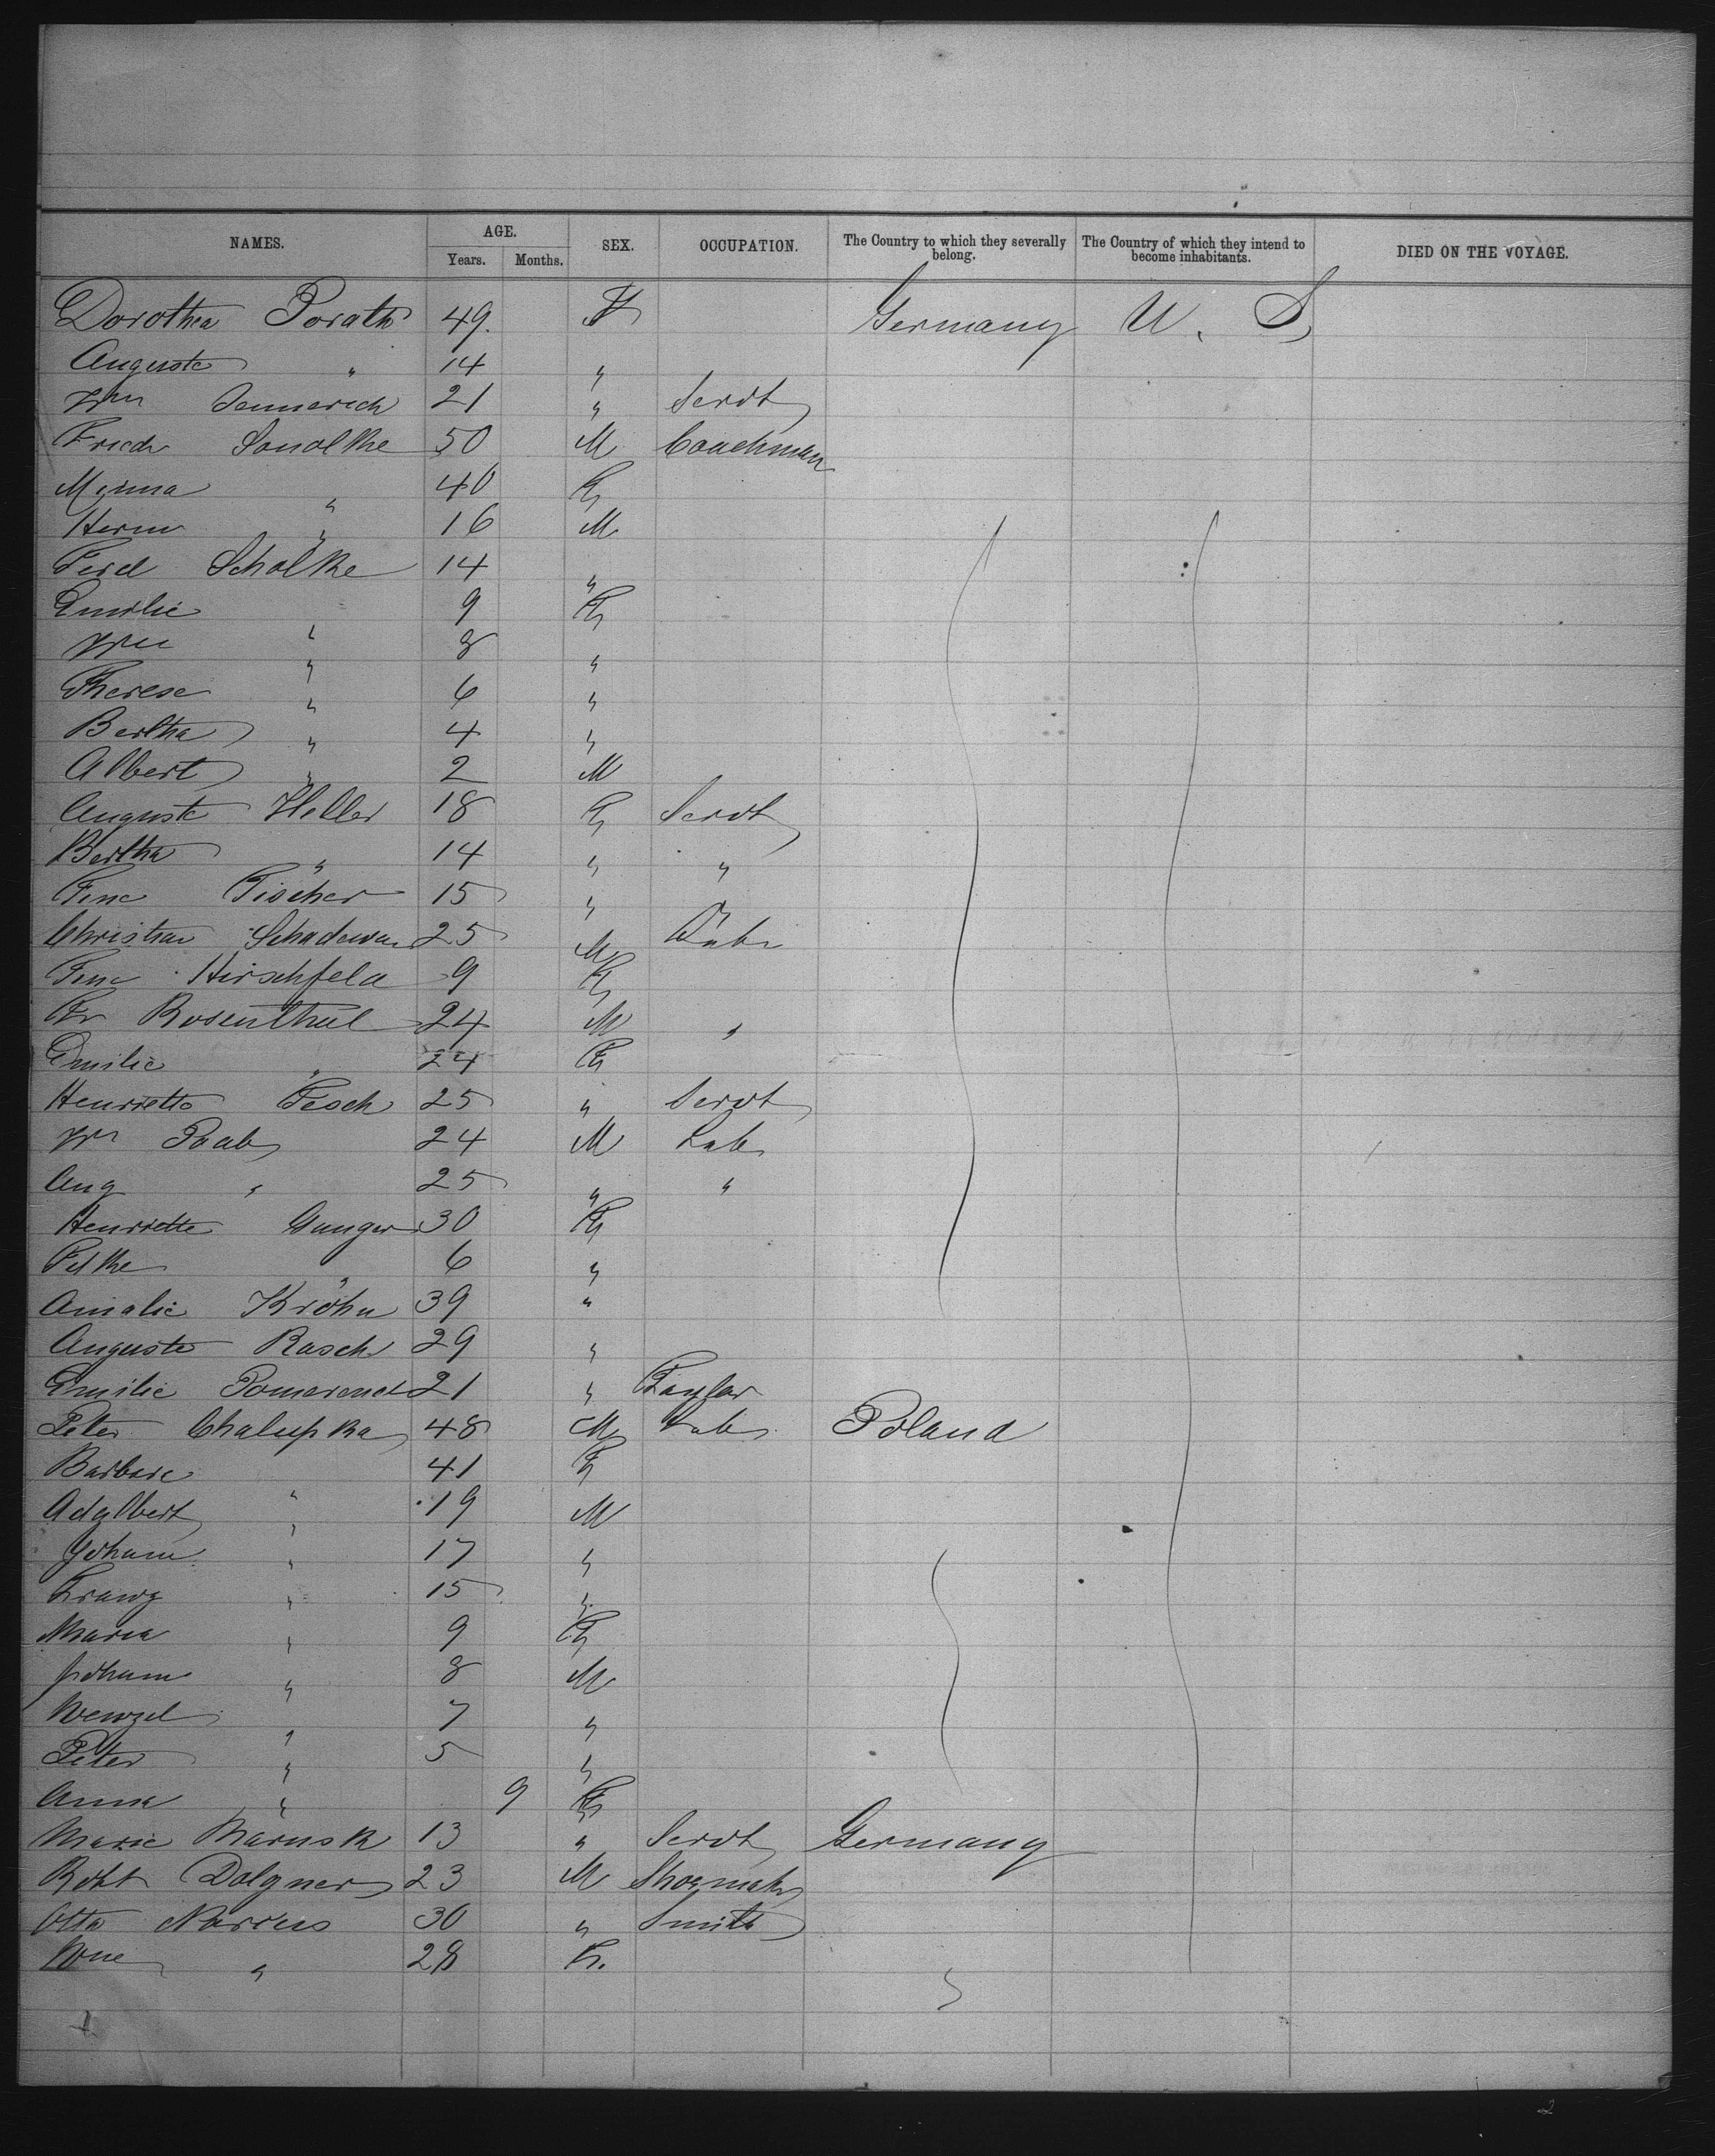 NAMES. AGE. SEX. OCCUPATION. The Country to which they severally belong. The Country of which they intend to become inhabitants. DIED ON THE VOYAGE.
Years. Months.
Dorothea Porath 49. F Germany U. S
Auguste " 14 "
Wm 21 " Servt
Friedr 50 M Coachman
Minna " 40 F
Herm " 16 M
Ferd Scholke 14 "
Emilie " 9 F
Wm " 8 "
Therese " 6 "
Bertha " 4 "
Albert " 2 M
Auguste Heller 18 F Servt
Bertha " 14 " "
Fine Fischer 15 " "
Christian Schadewan 25 M Lab
Fine Hirschfeld 9 F
Fr Rosenthal 24 M "
Emilie " 24 F
Henriette Pesch 25 " Servt
Wm Raab 24 M Lab
Aug " 25 " "
Henriette 30 F
" 6 "
Amalie Kröhn 39 "
Auguste Rasch 29 "
Emilie Pomerend 21 " Taylor
Peter Chalupka 48 M Lab Poland
Barbara " 41 F
Adalbert " 19 M
Johann " 17 "
Franz " 15 "
Maria " 9 F
Johann " 8 M
Wenzel " 7 "
Peter " 5 "
Anna " 9 F
Marie 13 " Servt Germany
Robt Dolgner 23 M Shoemak
Otto Marcus 30 " Smith
Wne " 28 F.
2